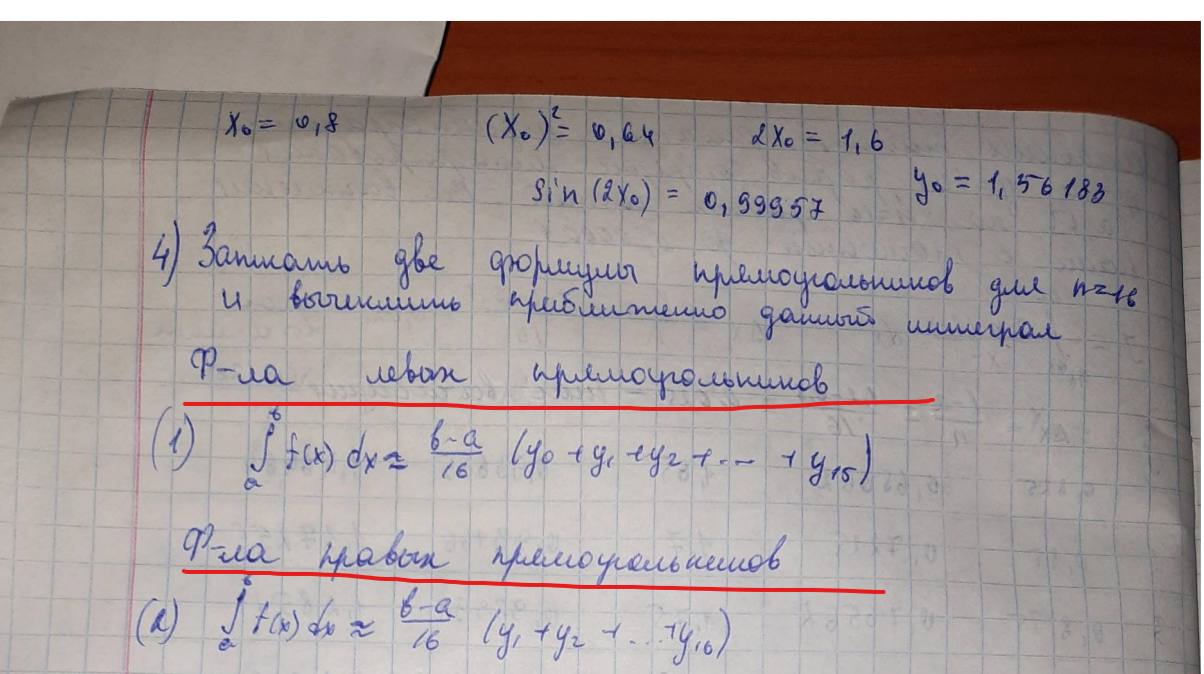 x₀ = 0,8 (x₀)² = 0,64 2x₀ = 1,6
sin(2x₀) = 0,99957 y₀ = 1,56183
4) Записать две формулы прямоугольников для n=16
и вычислить приближенно данный интеграл
Ф-ла левых прямоугольников
(1) ∫ₐᵇ f(x) dx ≈ (b-a)/16 (y₀ + y₁ + y₂ + ... + y₁₅)
Ф-ла правых прямоугольников
(2) ∫ₐᵇ f(x) dx ≈ (b-a)/16 (y₁ + y₂ + ... + y₁₆)